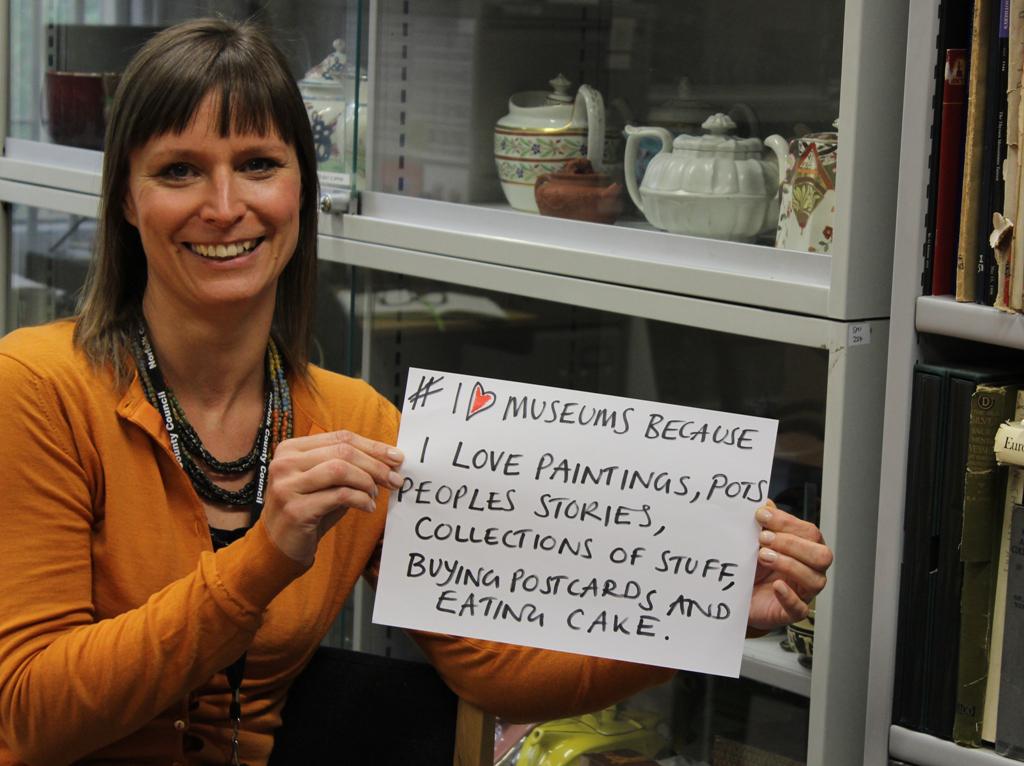 # I ❤ MUSEUMS BECAUSE
I LOVE PAINTINGS, POTS
PEOPLES STORIES,
COLLECTIONS OF STUFF,
BUYING POSTCARDS AND
EATING CAKE.
County Council
County Council